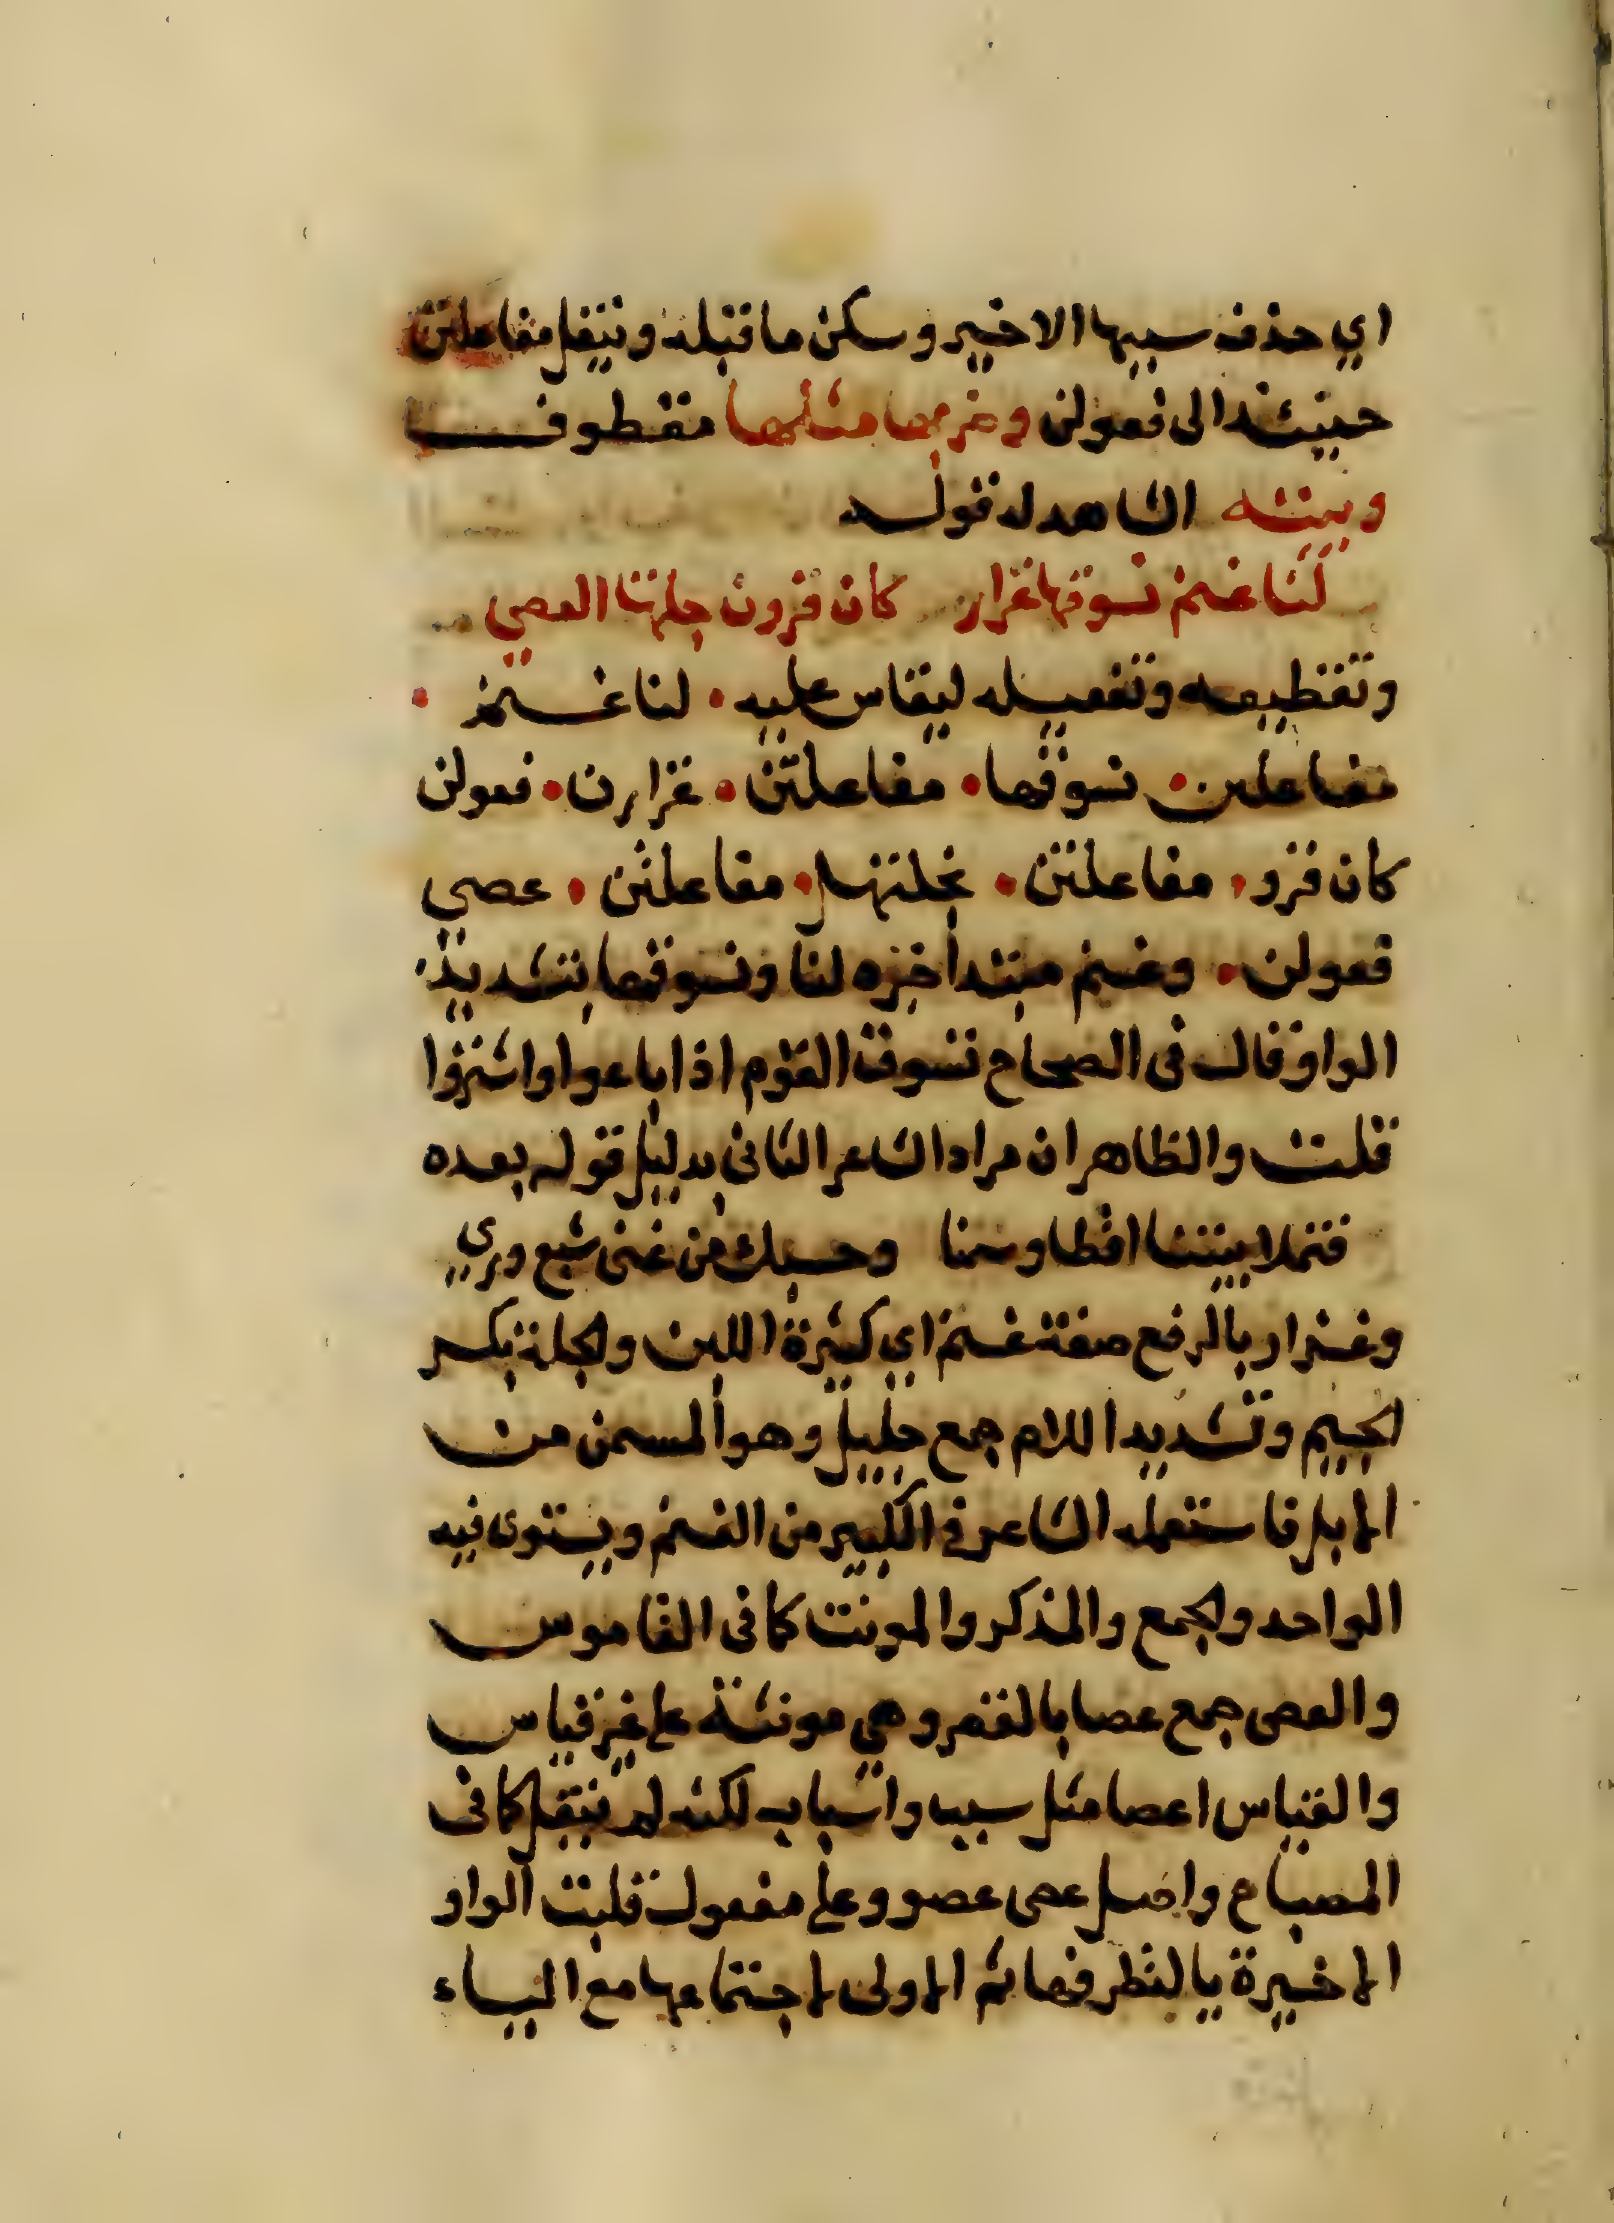 اي حذف سببها الاخير وسكن ما قبله وينقل مفاعلتن
حينئذ الى فعولن وضربها مثلها مقطوف
وبيته الشاهد له قوله
لنا غنم نسوقها غزار كان قرون جلتها العصي
وتقطيعه وتفعيله ليقاس عليه • لنا غنمن •
مفاعلتن • نسوقها • مفاعلتن • غزارن • فعولن
كان قرو • مفاعلتن • نجلتهل • مفاعلتن • عصي
فعولن • وغنم مبتدا خبره لنا ونسوقها بتشديد
الواو قال في الصحاح تسوق القوم اذا باعوا واشتروا
قلت والظاهر ان مراد الشاعر الثاني بدليل قوله بعده
فتملا بيتنا اقطا وسمنا وحسبك من غنى شبع وري
وغزار بالرفع صفة غنم اي كثيرة اللبن والجلة بكسر
الجيم وتشديد اللام جمع جليل وهو المسمن من
الابل فاستعمله الشاعر في الكبير من الغنم ويستوى فيه
الواحد والجمع والمذكر والمونت كما في القاموس
والعصى جمع عصا بالقصر وهي مونثة على غير قياس
والقياس اعصا مثل سبب واسباب لكنه لم ينقل كما فى
المصباح واصل عصى عصوو على مفعول قلبت الواو
الاخيرة يا لتطرفها ثم الاولى لاجتماعها مع الياء